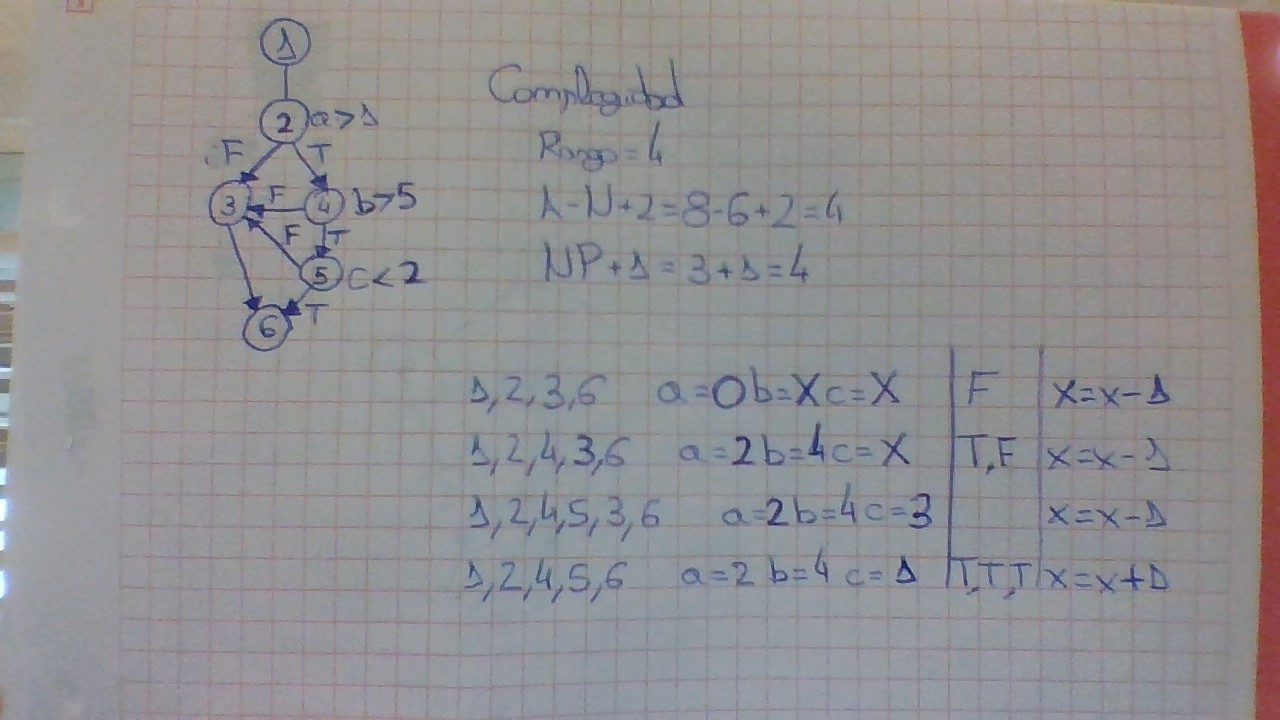 1
2 a>1
F T
3 F 4 b>5
F T
5 c<2
6 T
Complegidad
Rango=4
A-N+2=8-6+2=4
NP+1=3+1=4
1,2,3,6 a=0 b=X c=X F x=x-1
1,2,4,3,6 a=2 b=4 c=X T,F x=x-1
1,2,4,5,3,6 a=2 b=4 c=3 x=x-1
1,2,4,5,6 a=2 b=4 c=1 T,T,T x=x+1